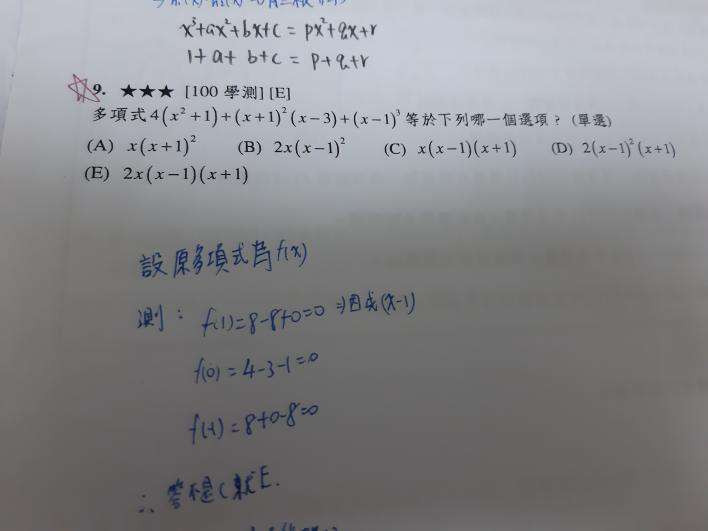 x³+ax²+bx+c = px²+qx+r
1+a+b+c = p+q+r
9. ★★★ [100 學測] [E]
多項式 4(x²+1)+(x+1)²(x−3)+(x−1)³ 等於下列哪一個選項？(單選)
(A) x(x+1)² (B) 2x(x−1)² (C) x(x−1)(x+1) (D) 2(x−1)²(x+1)
(E) 2x(x−1)(x+1)
設原多項式為f(x)
測： f(1)=8-8+0=0 ⇒因式(x-1)
f(0)=4-3-1=0
f(-1)=8+0-8=0
∴ 答不是C就E.